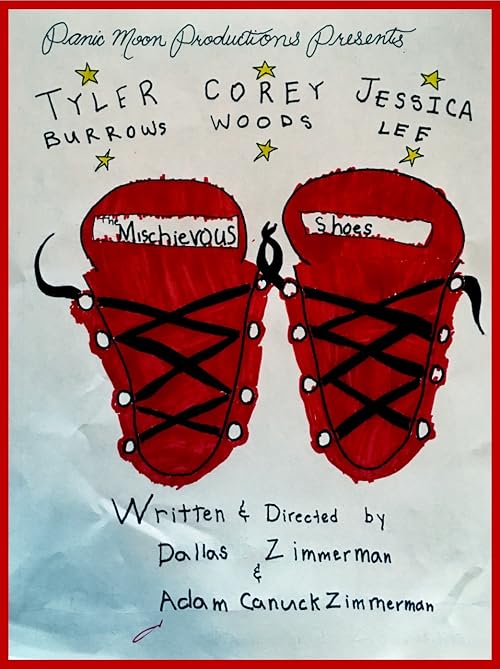 Panic Moon Productions Presents
TYLER BURROWS
COREY WOODS
JESSICA LEE
The Mischievous Shoes
Written & Directed by
Dallas Zimmerman
&
Adam Canuck Zimmerman